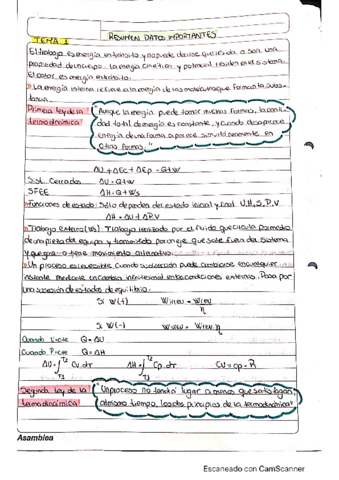 RESUMEN DATOS IMPORTANTES
TEMA 1
El trabajo es energía en tránsito y no puede decirse que resida o sea una
propiedad del cuerpo. La energía cinética y potencial residen en el sistema.
El calor es energía en tránsito.
La energía interna se refiere a la energía de las moléculas que forman la sus-
tancia.
Primera ley de la
termodinámica
"Aunque la energía puede tomar muchas formas, la canti-
dad total de energía es constante, y cuando desaparece
energía de una forma aparece simultáneamente en
otras formas."
ΔU + ΔEc + ΔEp = Q + W
Sist. Cerrados ΔU = Q + W
SFEE ΔH = Q + Ws
Funciones de estado: Sólo dependen del estado inicial y final. U, H, S, P, V
ΔH = ΔU + ΔP.V
Trabajo externo (Ws): Trabajo realizado por el fluido que circula por medio
de una pieza del equipo y transmitido por un eje que sale fuera del sistema
y que gira o tiene movimiento alternativo.
Un proceso es reversible cuando su dirección puede cambiarse en cualquier
instante mediante un cambio infinitesimal en las condiciones externas. Pasa por
una sucesión de estados de equilibrio.
Si W(+) Wirrev = Wrev/η
Si W(-) Wirrev = Wrev.η
Cuando V=cte Q = ΔU
Cuando P=cte Q = ΔH
ΔU = ∫T1 T2 Cv.dT ΔH = ∫T1 T2 Cp.dT Cv = Cp - R
Segunda ley de la
termodinámica
"Un proceso no tendrá lugar a menos que satisfagan,
al mismo tiempo, los dos principios de la termodinámica"
Asamblea
Escaneado con CamScanner